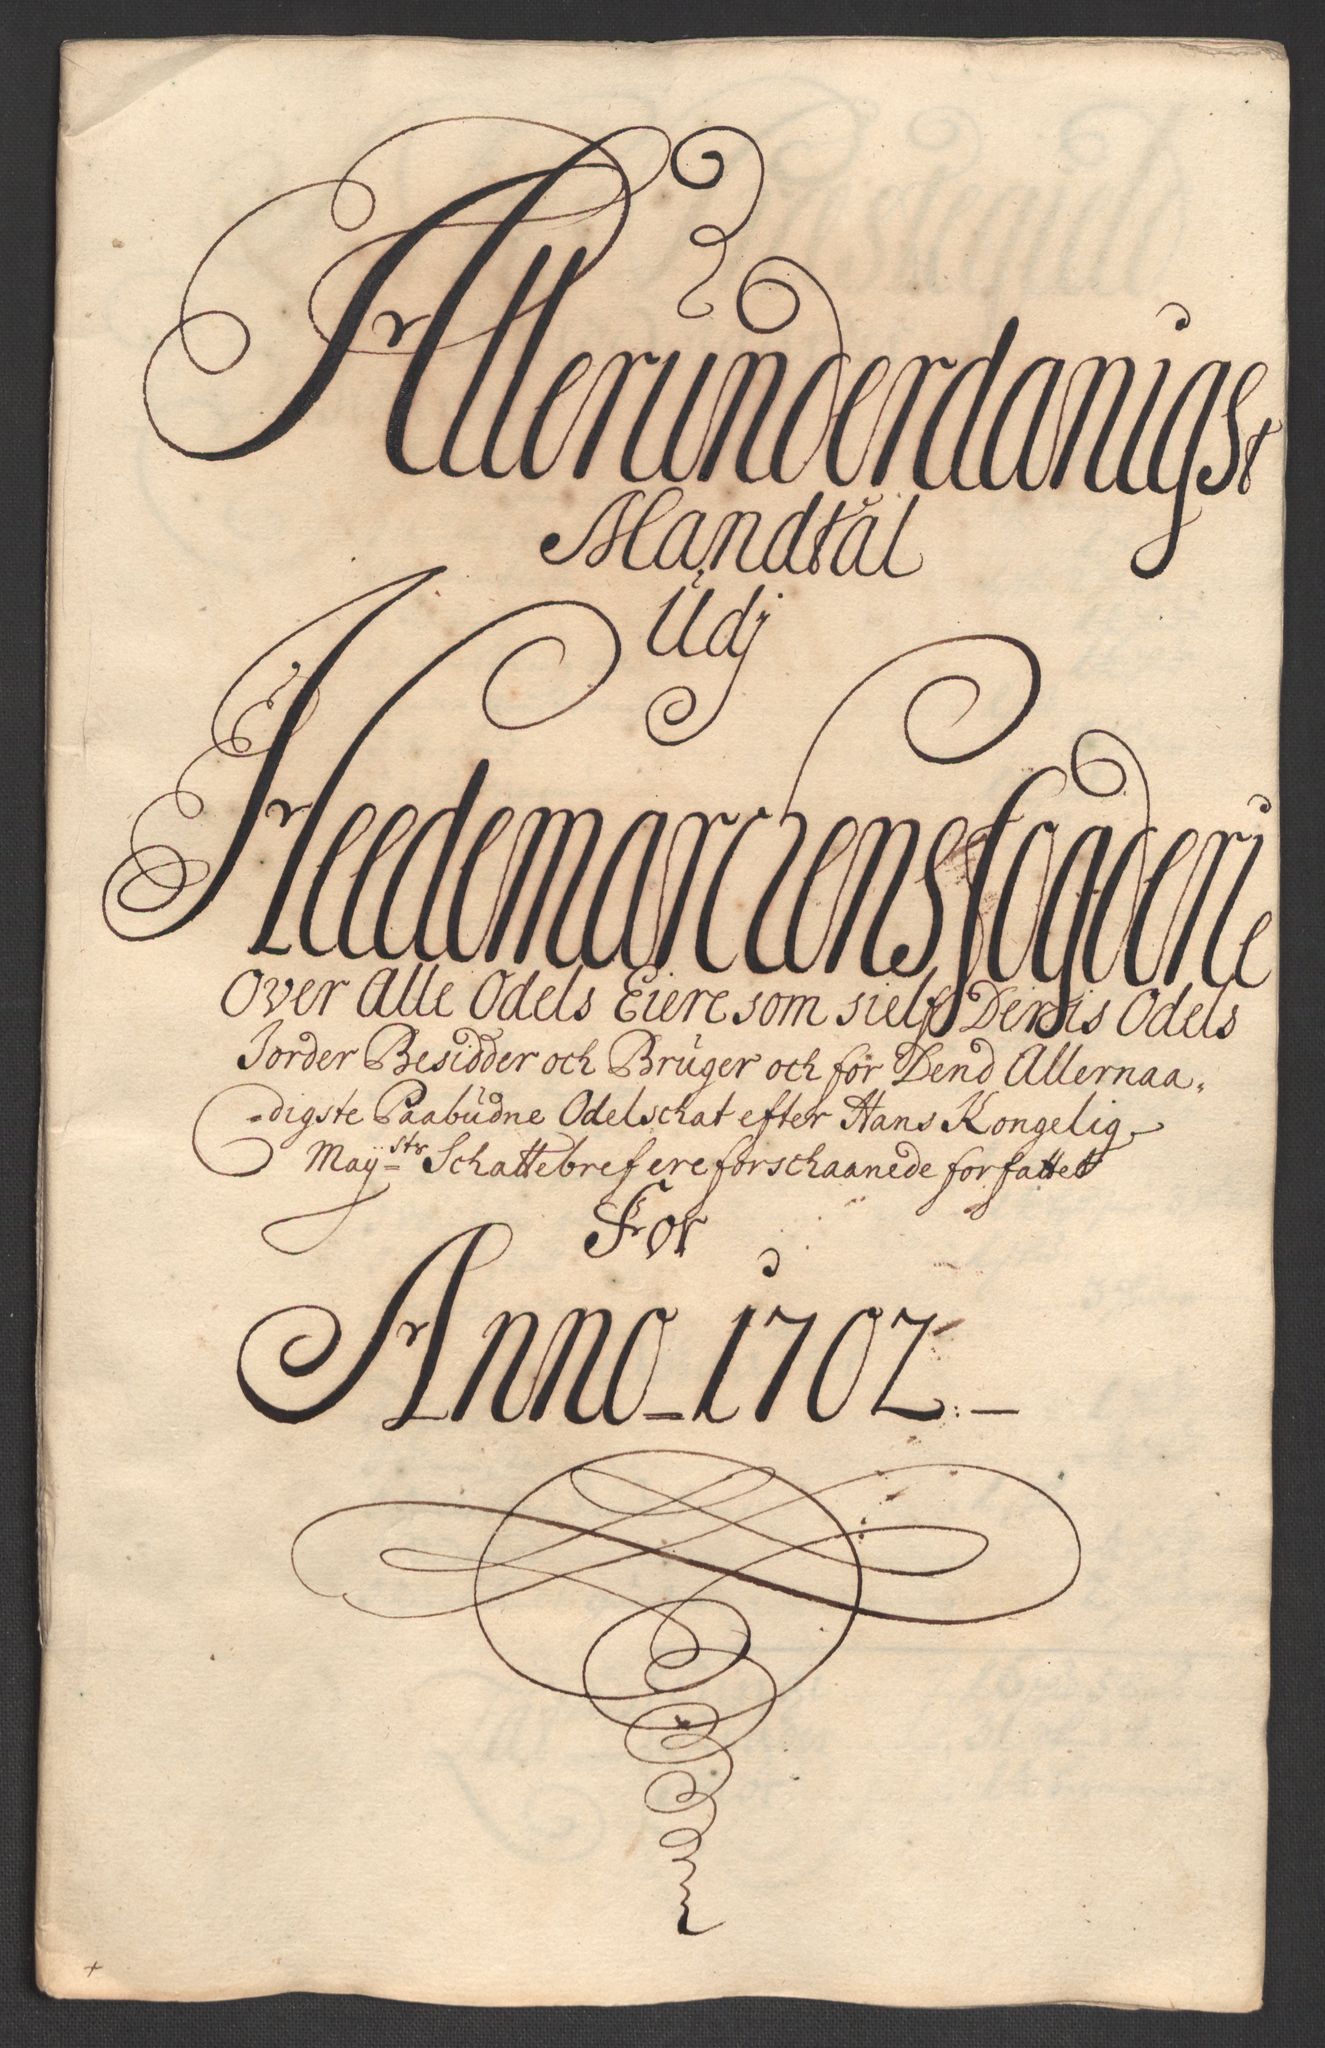 Allerunderdanigst
Mandtal
Udj
Heedemarchens fogderie
Over Alle Odels Eiere som sielf Deris Odels
Jorder Besidder och Brüger och for Dend Allernaa-
-digste Paabüdne Odelschat efter Hans Kongelig
May=sts Schattebref ere forschaanede forfattet
For
Anno 1702